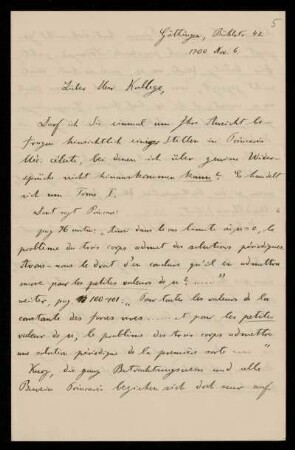 5
Göttingen, Bühlstr. 42
1900 Nov. 6.
Lieber Herr Kollege,
Darf ich Sie einmal um Ihre Ansicht be-
fragen hinsichtlich einiger Stellen in Poincarés
Méc. céleste, bei denen ich über gewisse Wider-
sprüche nicht hinwegkommen kann? Es handelt
sich um Tome I.
Dort sagt Poincaré
pag 96 unten: „Ainsi dans le cas limite où μ = 0, le
problème des trois corps admet des solutions périodiques.
Avons-nous le droit d'en conclure qu'il en admettra
encore pour les petites valeurs de μ? ......"
weiter, pag 100-101: „Pour toutes les valeurs de la
constante des forces vives ...... et pour les petites
valeurs de μ, le problème des trois corps admettra
une solution périodique de la première sorte ......"
Kurz, die ganze Betrachtungsweise und alle
Beweise Poincarés beziehen sich doch nur auf